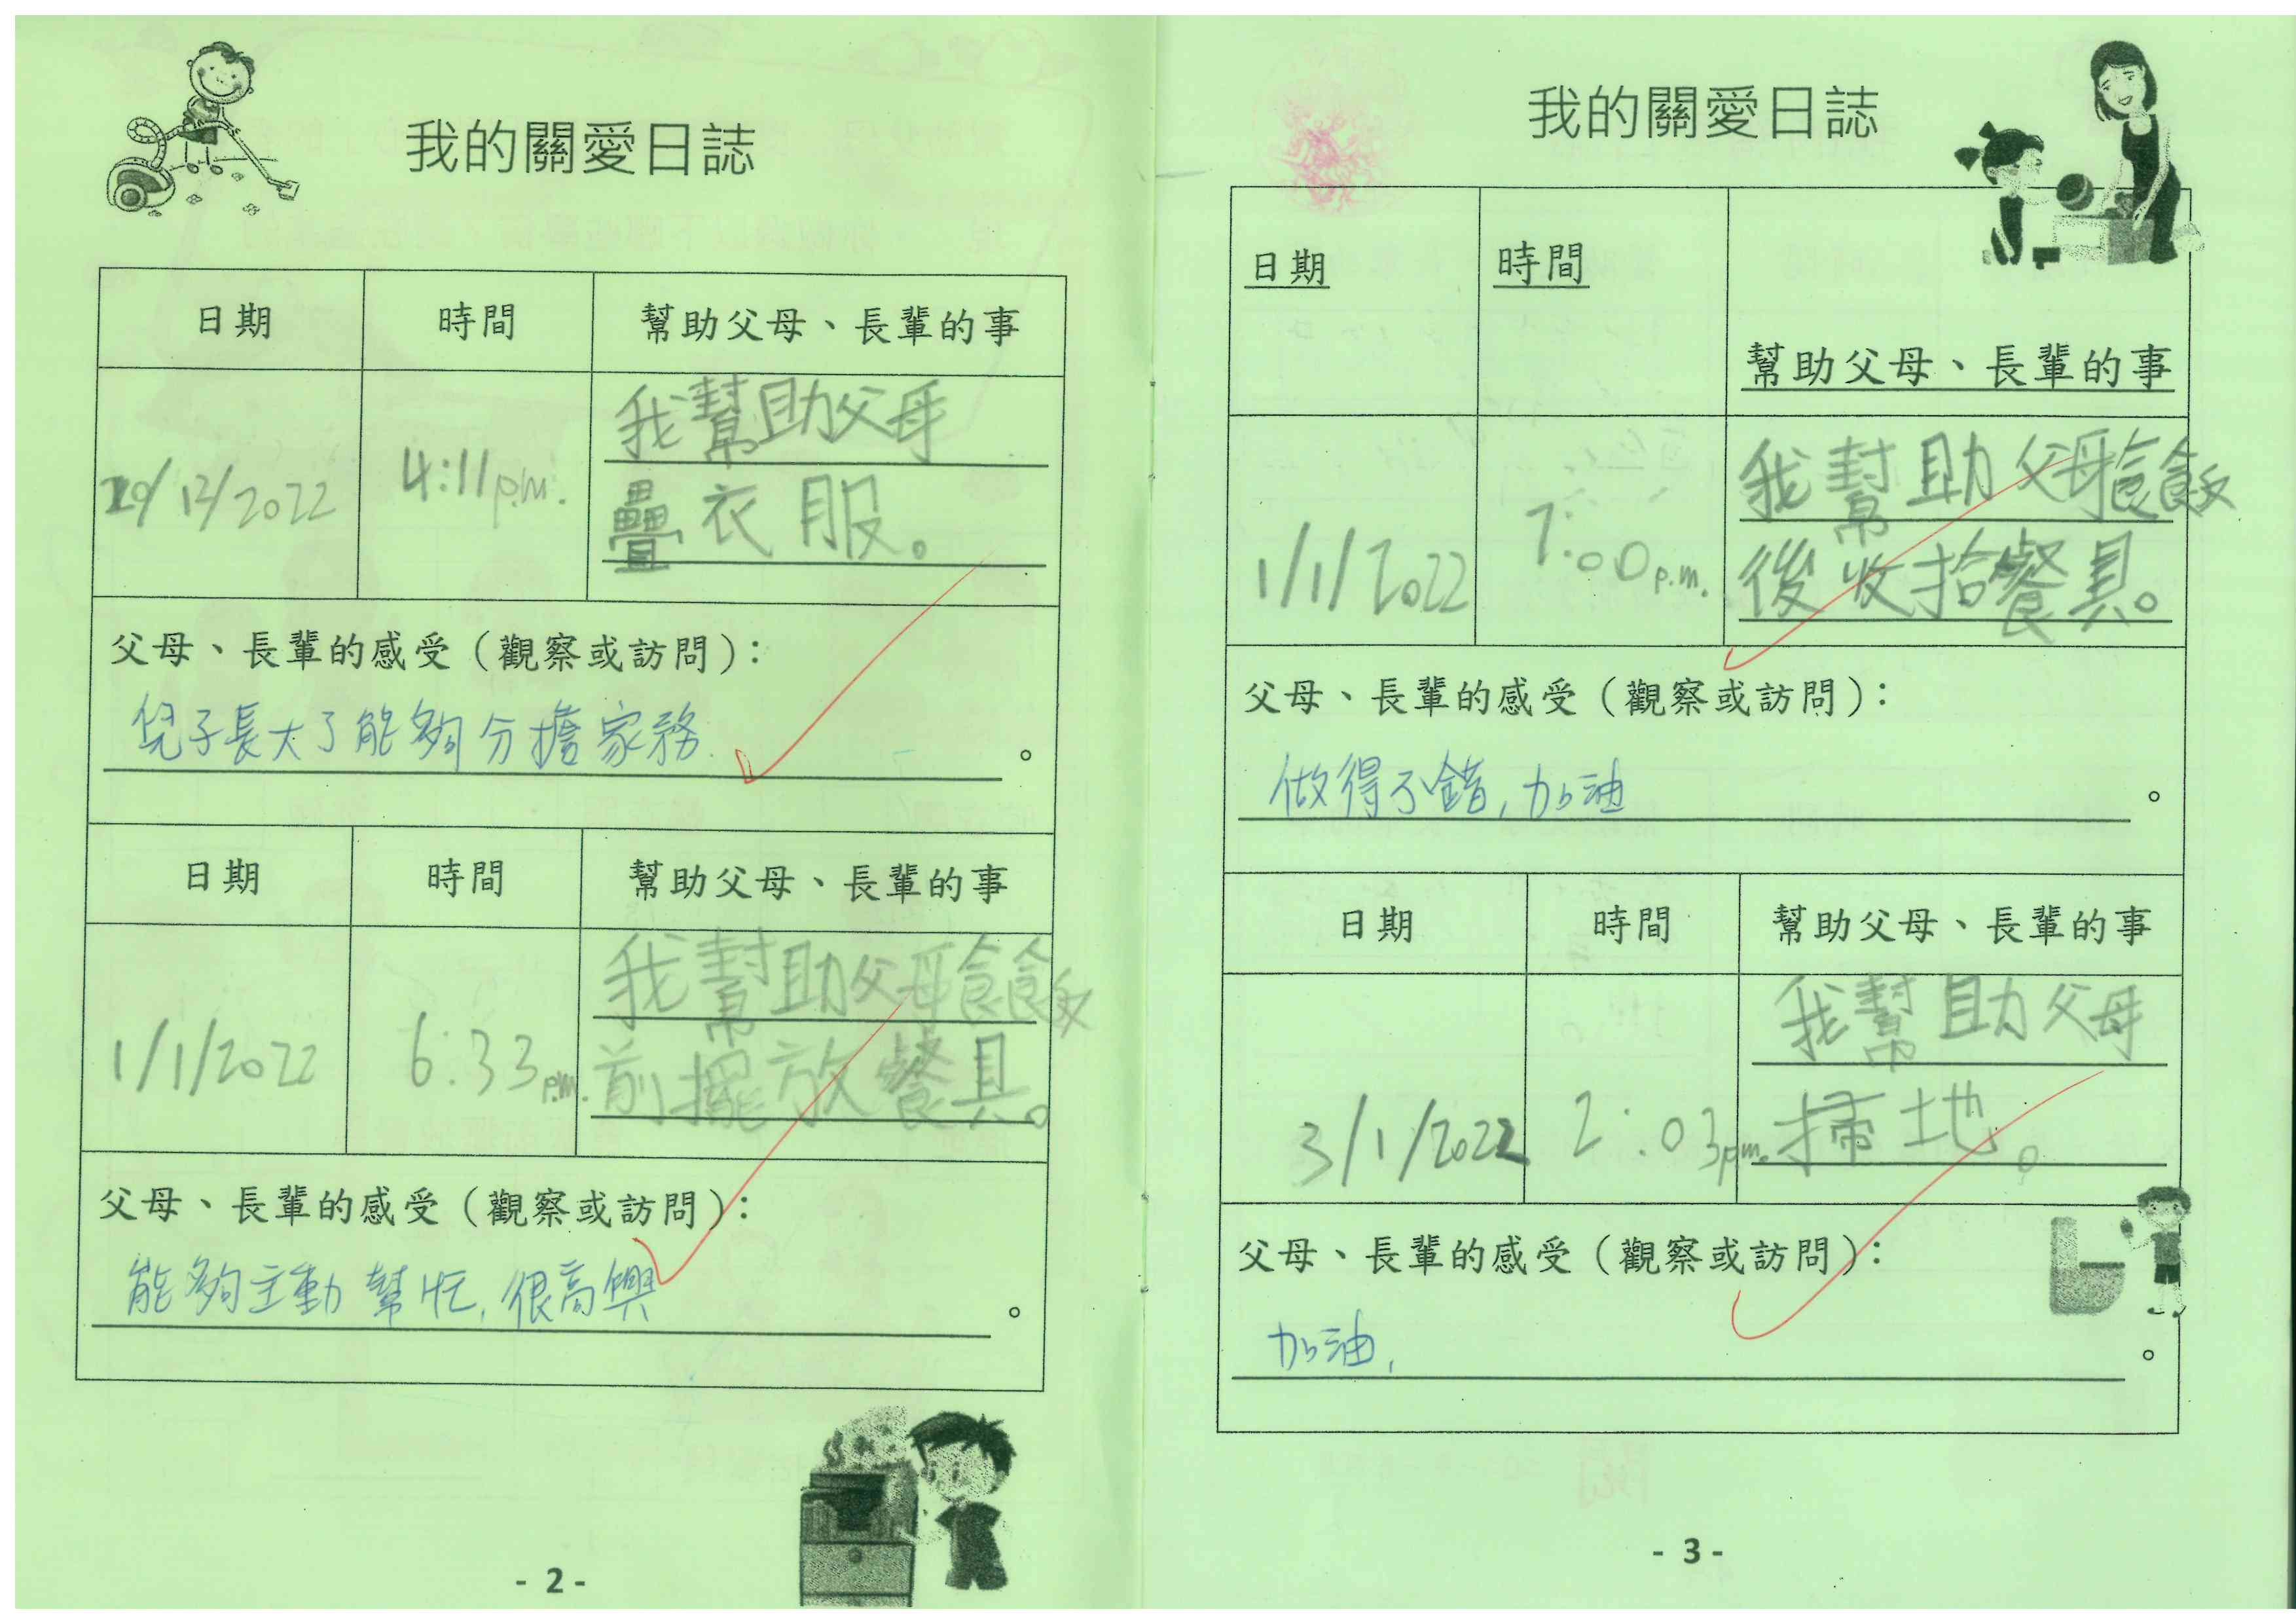 我的關愛日誌
日期 時間 幫助父母、長輩的事
29/12/2022 4:11 p.m. 我幫助父母
疊衣服。
父母、長輩的感受（觀察或訪問）：
兒子長大了能夠分擔家務。
日期 時間 幫助父母、長輩的事
1/1/2022 6:33 p.m. 我幫助父母食飯
前擺放餐具。
父母、長輩的感受（觀察或訪問）：
能夠主動幫忙,很高興。
- 2 -
我的關愛日誌
日期 時間
幫助父母、長輩的事
1/1/2022 7:00 p.m. 我幫助父母食飯
後收拾餐具。
父母、長輩的感受（觀察或訪問）：
做得不錯,加油。
日期 時間 幫助父母、長輩的事
3/1/2022 2:03 pm. 我幫助父母
掃地。
父母、長輩的感受（觀察或訪問）：
加油,。
- 3 -